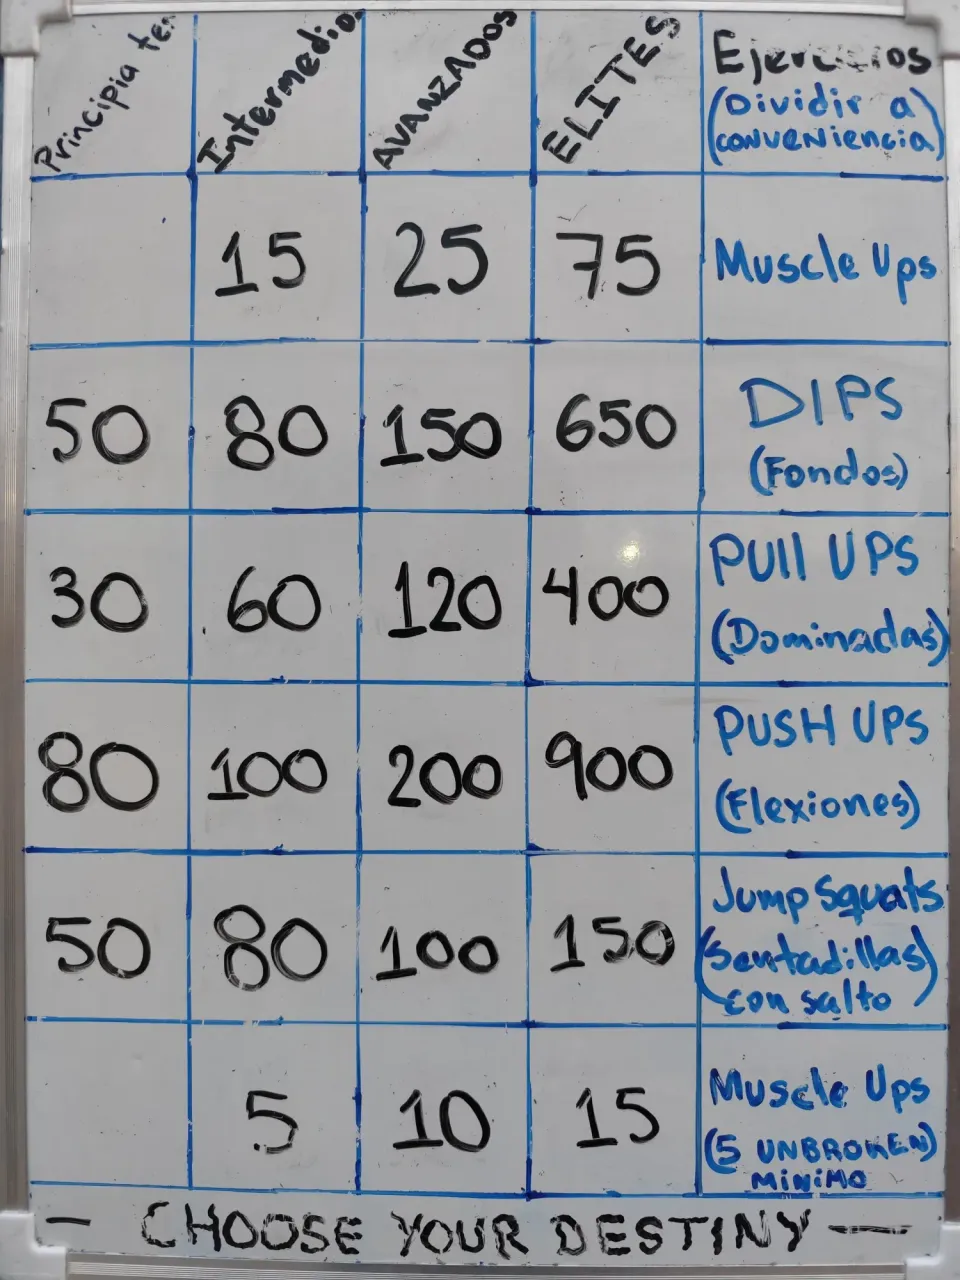 Principiantes Intermedio AVANZADOS ELITES Ejercicios
(Dividir a
conveniencia)
15 25 75 Muscle Ups
50 80 150 650 DIPS
(Fondos)
30 60 120 400 PUll UPS
(Dominadas)
80 100 200 900 PUSH UPS
(Flexiones)
50 80 100 150 Jump Squats
(Sentadillas)
con salto
5 10 15 Muscle Ups
(5 UNBROKEN)
MINIMO
— CHOOSE YOUR DESTINY —